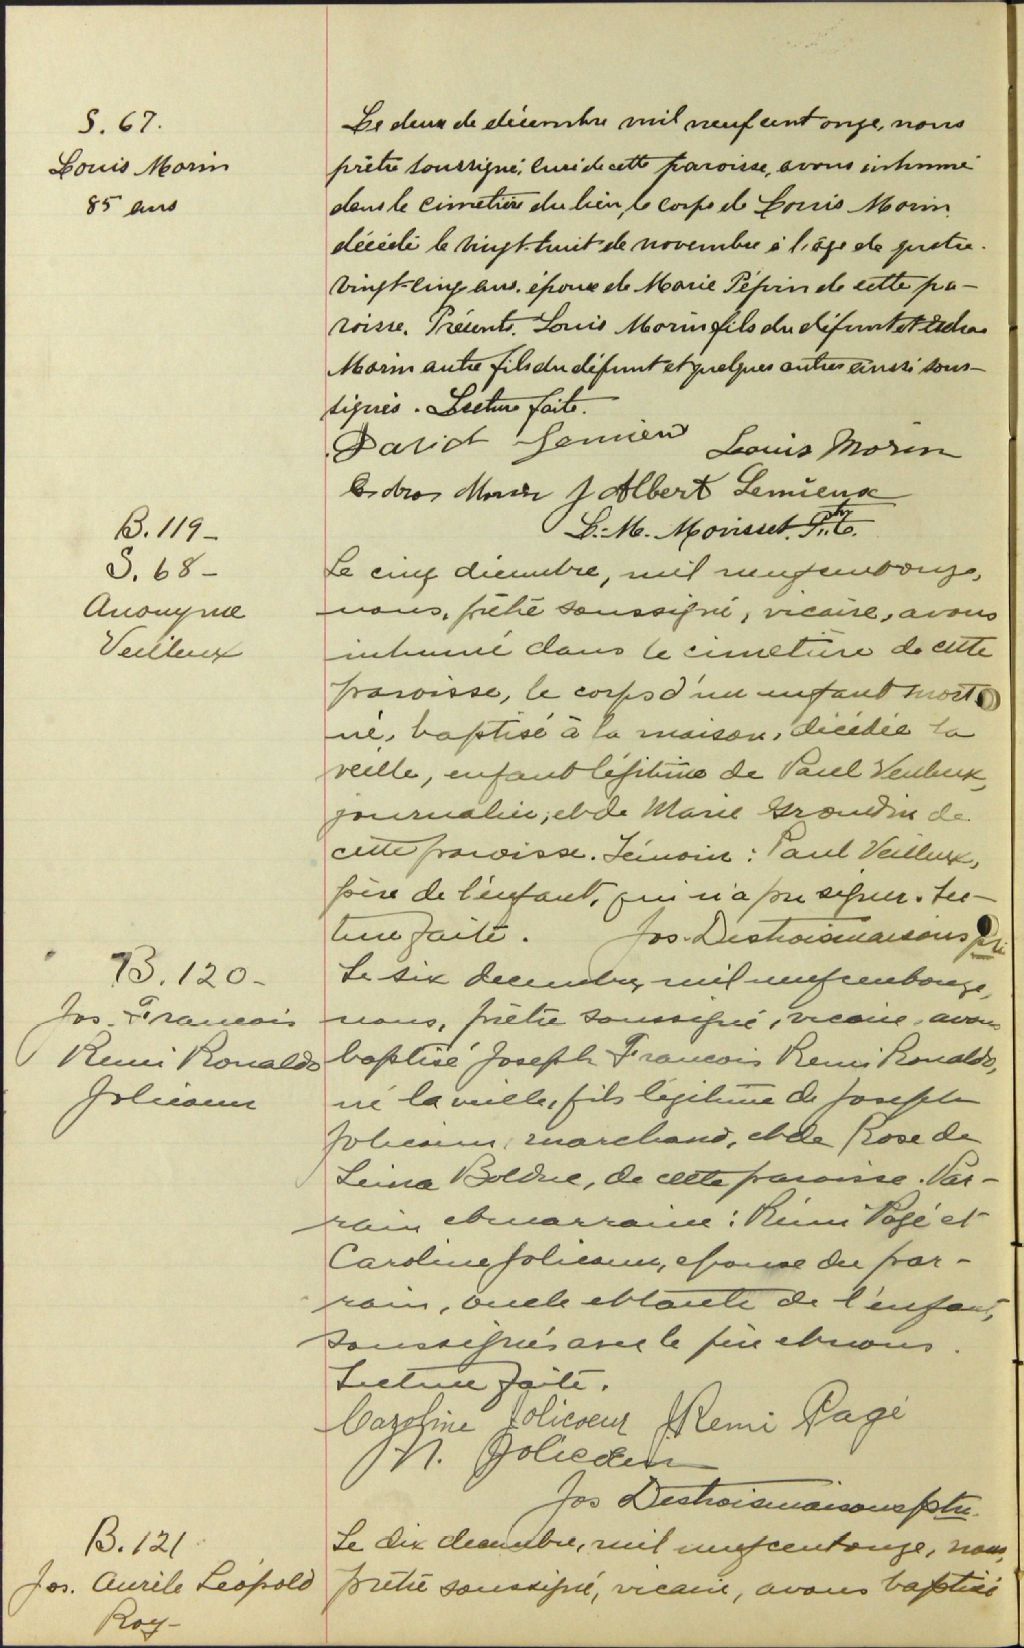 S. 67.
Louis Morin
85 ans
Le deux de décembre mil neuf cent onze, nous
prêtre soussigné, curé de cette paroisse, avons inhumé
dans le cimetière du lieu, le corps de Louis Morin
décédé le vingt-huit de novembre à l'âge de quatre-
vingt-cinq ans. époux de Marie Pépin de cette pa-
roisse. Présents. Louis Morin fils du défunt et Esdras
Morin autre fils du défunt et quelques autres aussi sous-
signés. Lecture faite.
David Lemieux Louis Morin
Esdras Morin J Albert Lemieux
L.-M. Morisset. Ptre.
B. 119 -
S. 68 -
Anonyme
Veilleux
Le cinq décembre, mil neuf cent onze,
nous, prêtre soussigné, vicaire, avons
inhumé dans le cimetière de cette
paroisse, le corps d'un enfant mort
né, baptisé à la maison, décédé la
veille, enfant légitime de Paul Veilleux,
journalier, et de Marie Grondin de
cette paroisse. Témoin : Paul Veilleux,
père de l'enfant, qui n'a pu signer. Lec-
ture faite. Jos. Destroismaisons ptre
B. 120 -
Jos. Francois
Remi Ronaldo
Jolicoeur
Le six decembre, mil neuf cent onze,
nous, prêtre soussigné, vicaire, avons
baptisé Joseph Francois Remi Ronaldo,
né la veille, fils légitime de Joseph
Jolicoeur, marchand, et de Rose de
Lima Bolduc, de cette paroisse. Par-
rain et marraine : Rémi Pagé et
Caroline Jolicoeur, epouse du par-
rain, oncle et tante de l'enfant,
soussignés avec le père et nous.
Lecture faite.
Caroline Jolicoeur J Remi Pagé
N. Jolicoeur
Jos Destroismaisons ptre.
B. 121
Jos. Aurèle Léopold
Roy -
Le dix decembre, mil neuf cent onze, nous,
prêtre soussigné, vicaire, avons baptisé